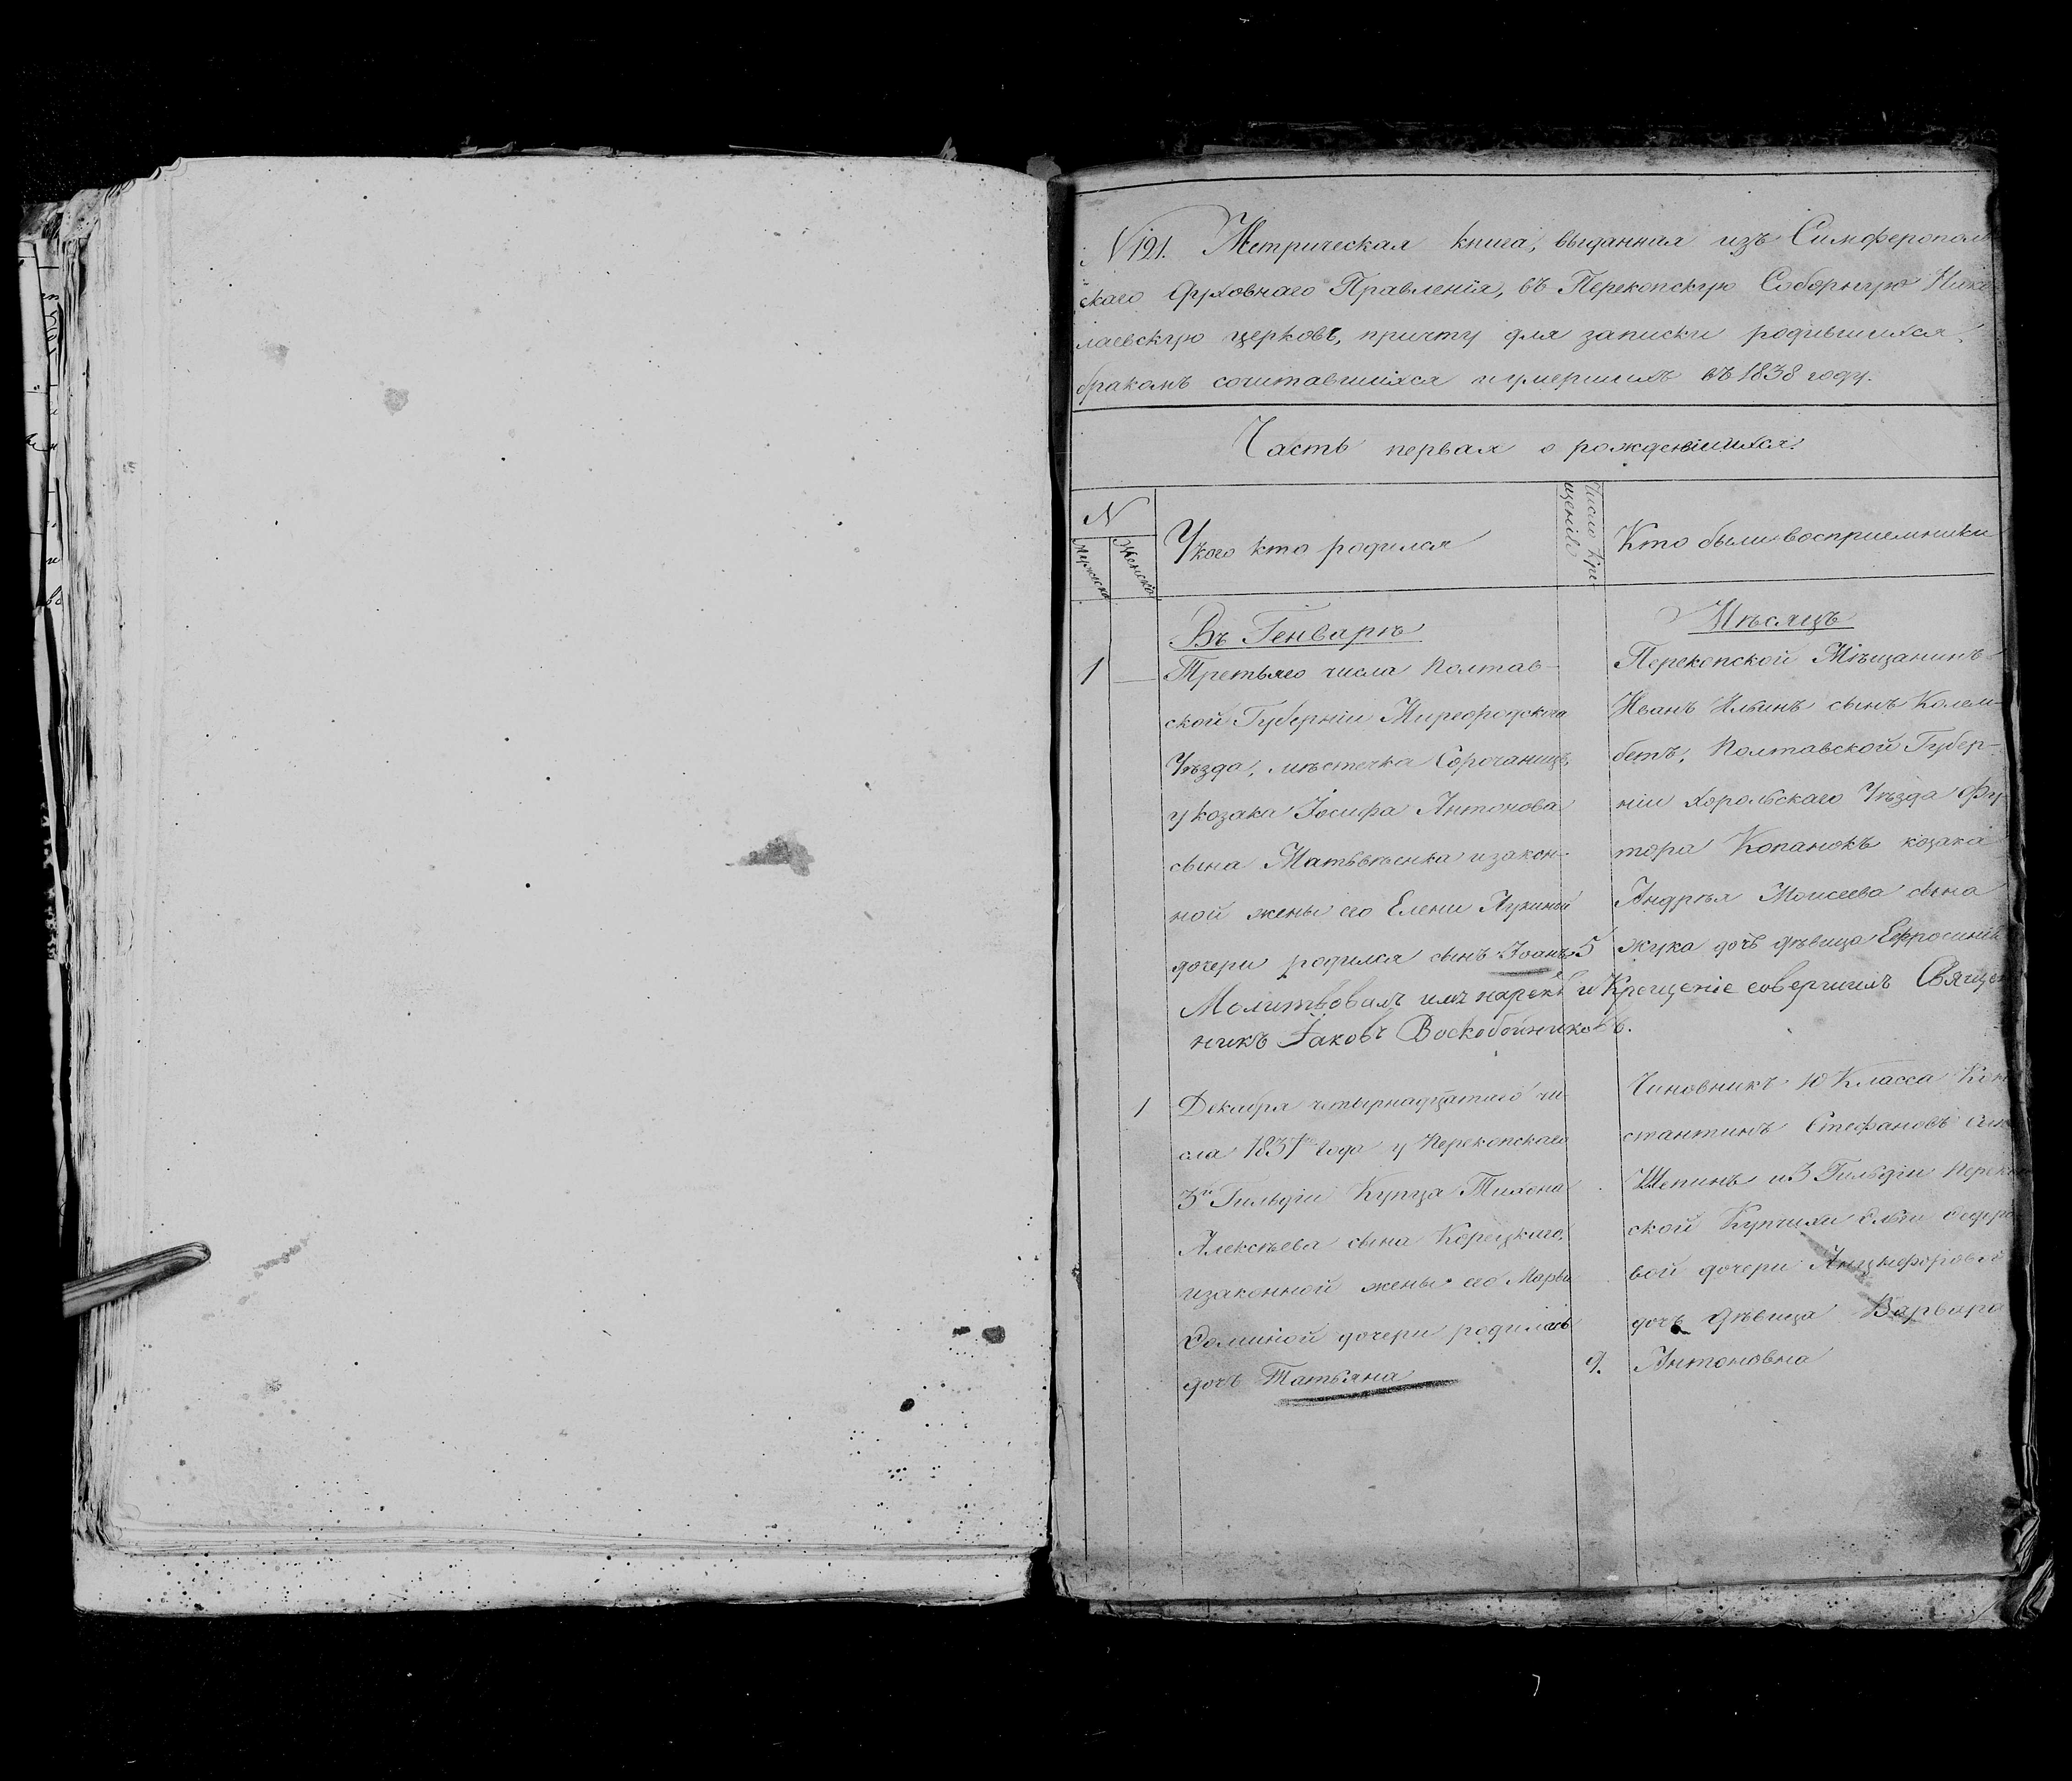 N 121. Метрическая книга, выданная изъ Симферополь
скаго Духовнаго Правленія, въ Перекопскую Соборную Нико
лаевскую церковь, причту для записки родившихся,
бракомъ сочитавшихся и умершихъ въ 1838 году.
Часть первая о рождешихся.
N
Мужеска
Женска
У кого кто родился
Число Кре-
щенія
Кто были восприемники
Въ Генварѣ
Мѣсяцъ
1
Третьяго числа Полтав-
ской Губерніи Миргородскаго
Уѣзда, мѣстечка Сорочанцъ
у козака Іосифа Антонова
сына Матвѣенка и закон-
ной жены его Елены
дочери родился сынъ Іоанъ
5
Перекопской Мѣщанинъ
Иванъ Ильинъ сынъ Колем-
бетъ, Полтавской Губер-
ніи Хорольскаго Уѣзда Фу
тора Копанокъ козака
Андрѣя Моисеева сына
жука дочь дѣвица Ефросинія
Молитвовалъ имя нарекъ и Крещеніе совершилъ Священ
никъ Іаковъ Воскобойниковъ.
1
Декабря четырнадцатаго чи-
сла 1837го года у Перекопскаго
3й Гильдіи Купца Тихона
Алексѣева сына Корецкаго,
и законной жены его Марьи
дочери родилась
дочь Татьяна
9.
Чиновникъ 10 Класса Кон
стантинъ Стефановъ сын
Шепинъ и 3 Гильдіи Переко
ской Купчихи Федоро
вой дочери
дочь дѣвица Варвара
Антоновна